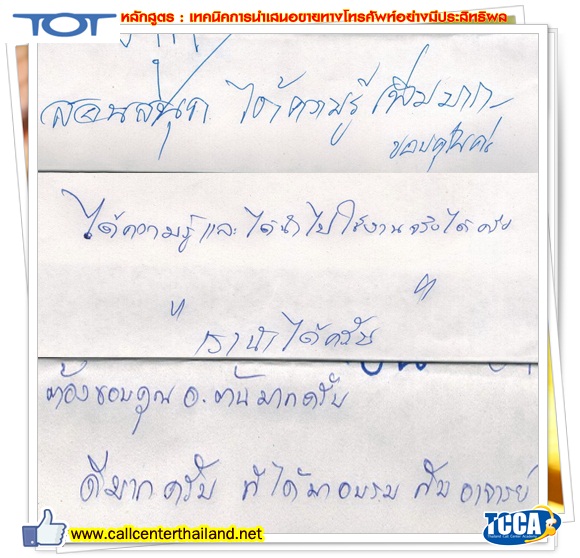 TOT
หลักสูตร : เทคนิคการนำเสนอขายทางโทรศัพท์อย่างมีประสิทธิผล
สอนสนุก ได้ความรู้ เพิ่มมาก
ขอบคุณค่ะ
ได้ความรู้และได้นำไปใช้งานจริงได้ครับ
" เรานำได้ครับ "
ต้องขอบคุณ อ. ต้น มากครับ
ดีมากครับ ที่ได้มาอบรม กับ อาจารย์
www.callcenterthailand.net
TCCA
Thailand Call Center Academy